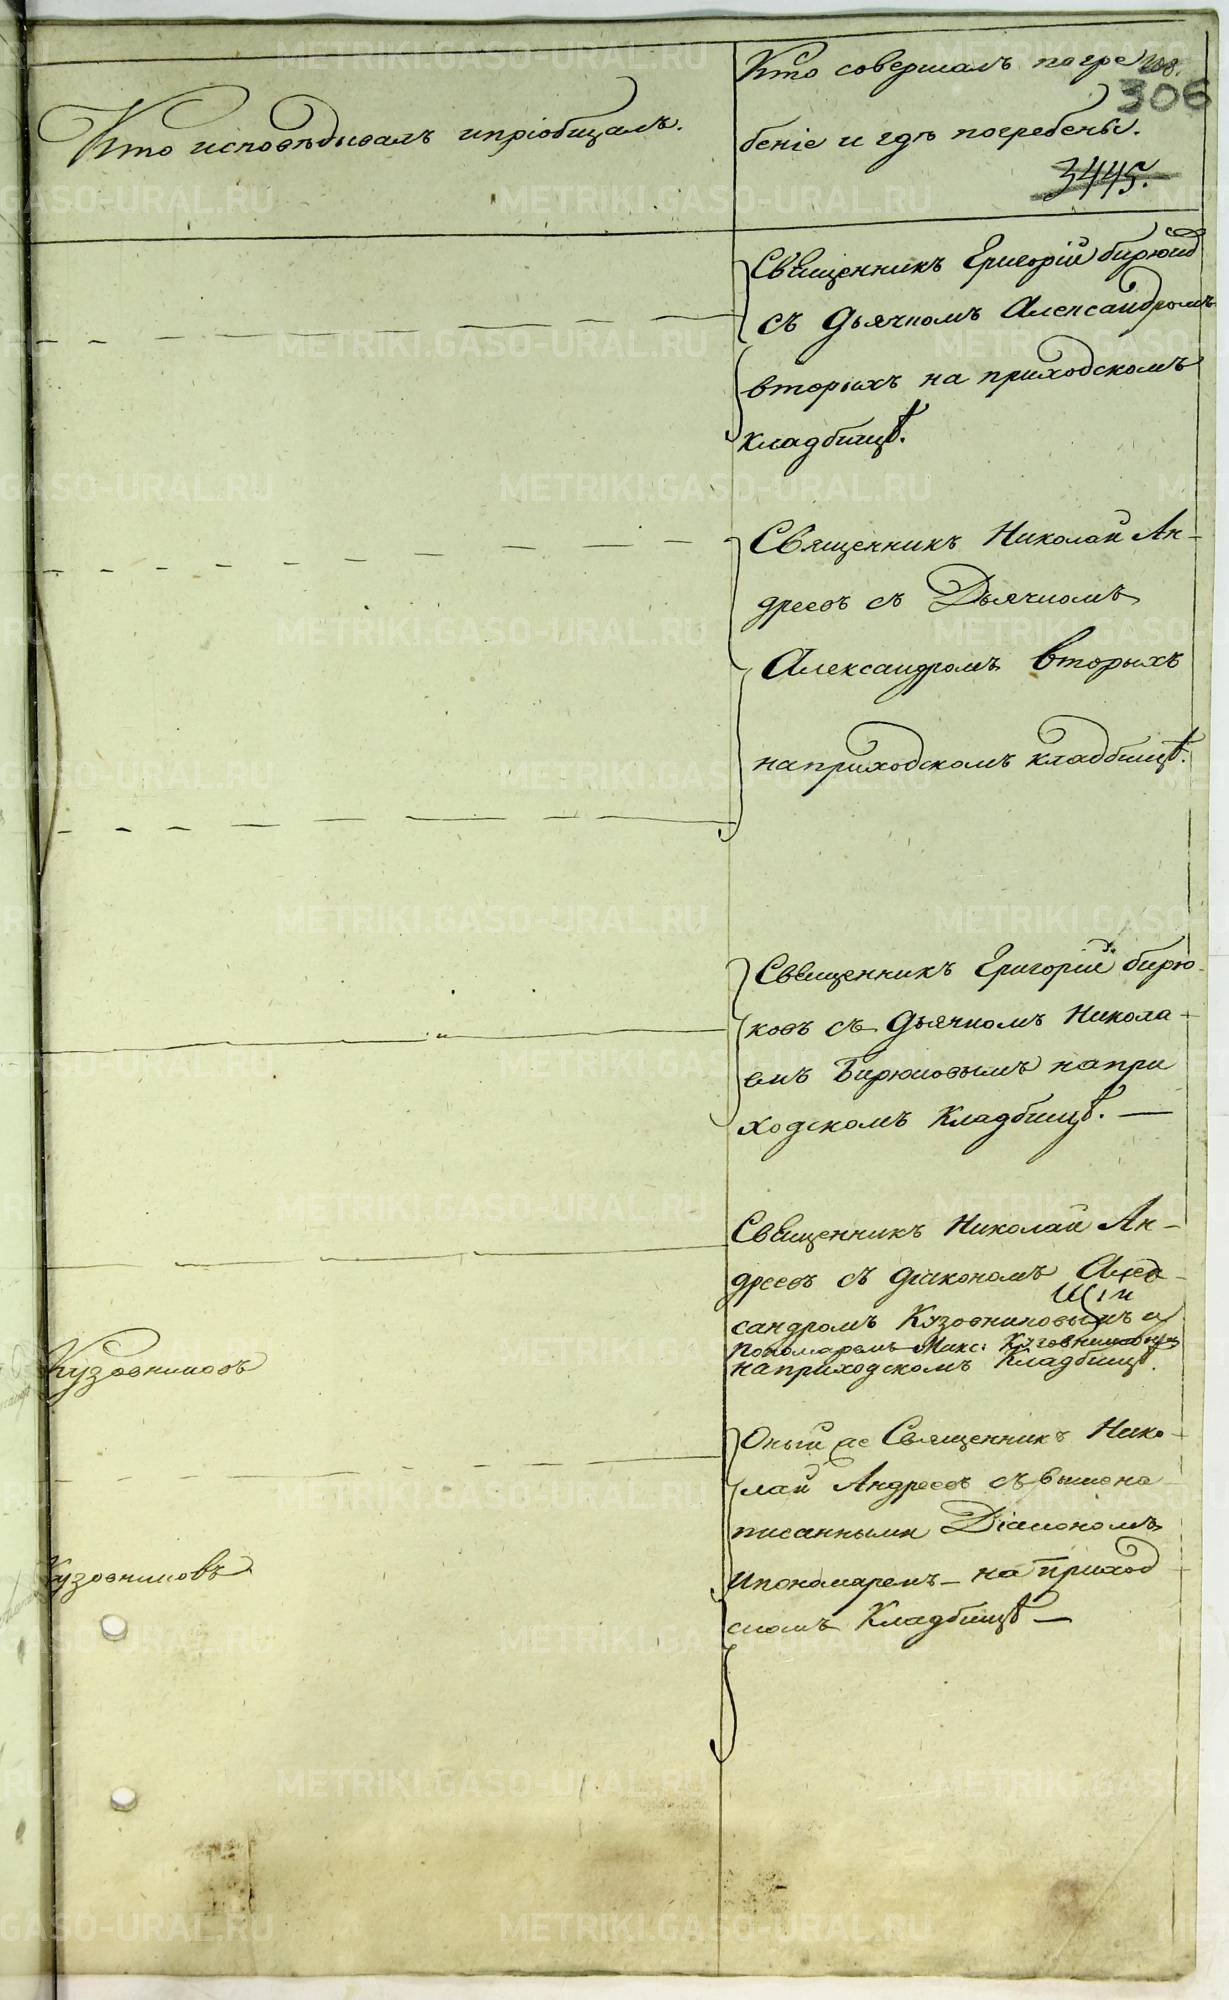 Кто исповѣдывалъ ипріобщалъ.
Кто совершалъ погре
208.
306
беніе и гдѣ погребены.
3445.
Священникъ Григорій бирюковъ
съ дьячкомъ Александромъ
вторыхъ на приходскомъ
кладбищѣ.
Священникъ Николай Ан-
дреевъ съ Дьячкомъ
Александромъ вторыхъ
наприходскомъ кладбищѣ.
Священникъ Григорій бирю-
ковъ съ дьячкомъ Никола-
емъ Бирюковымъ напри
ходскомъ Кладбищѣ. —
Священникъ Николай Ан-
дреевъ съ діакономъ Алек-
сандромъ Кузовниковымъ и
Пономаремъ Макс: Кузовниковымъ
наприходскомъ Кладбищѣ.
Кузовниковъ
Оный же Священникъ Нико-
лай Андреевъ съ вышена-
писанными Діакономъ
ипономаремъ — на приход
скомъ Кладбищѣ —
Кузовниковъ
METRIKI.GASO-URAL.RU